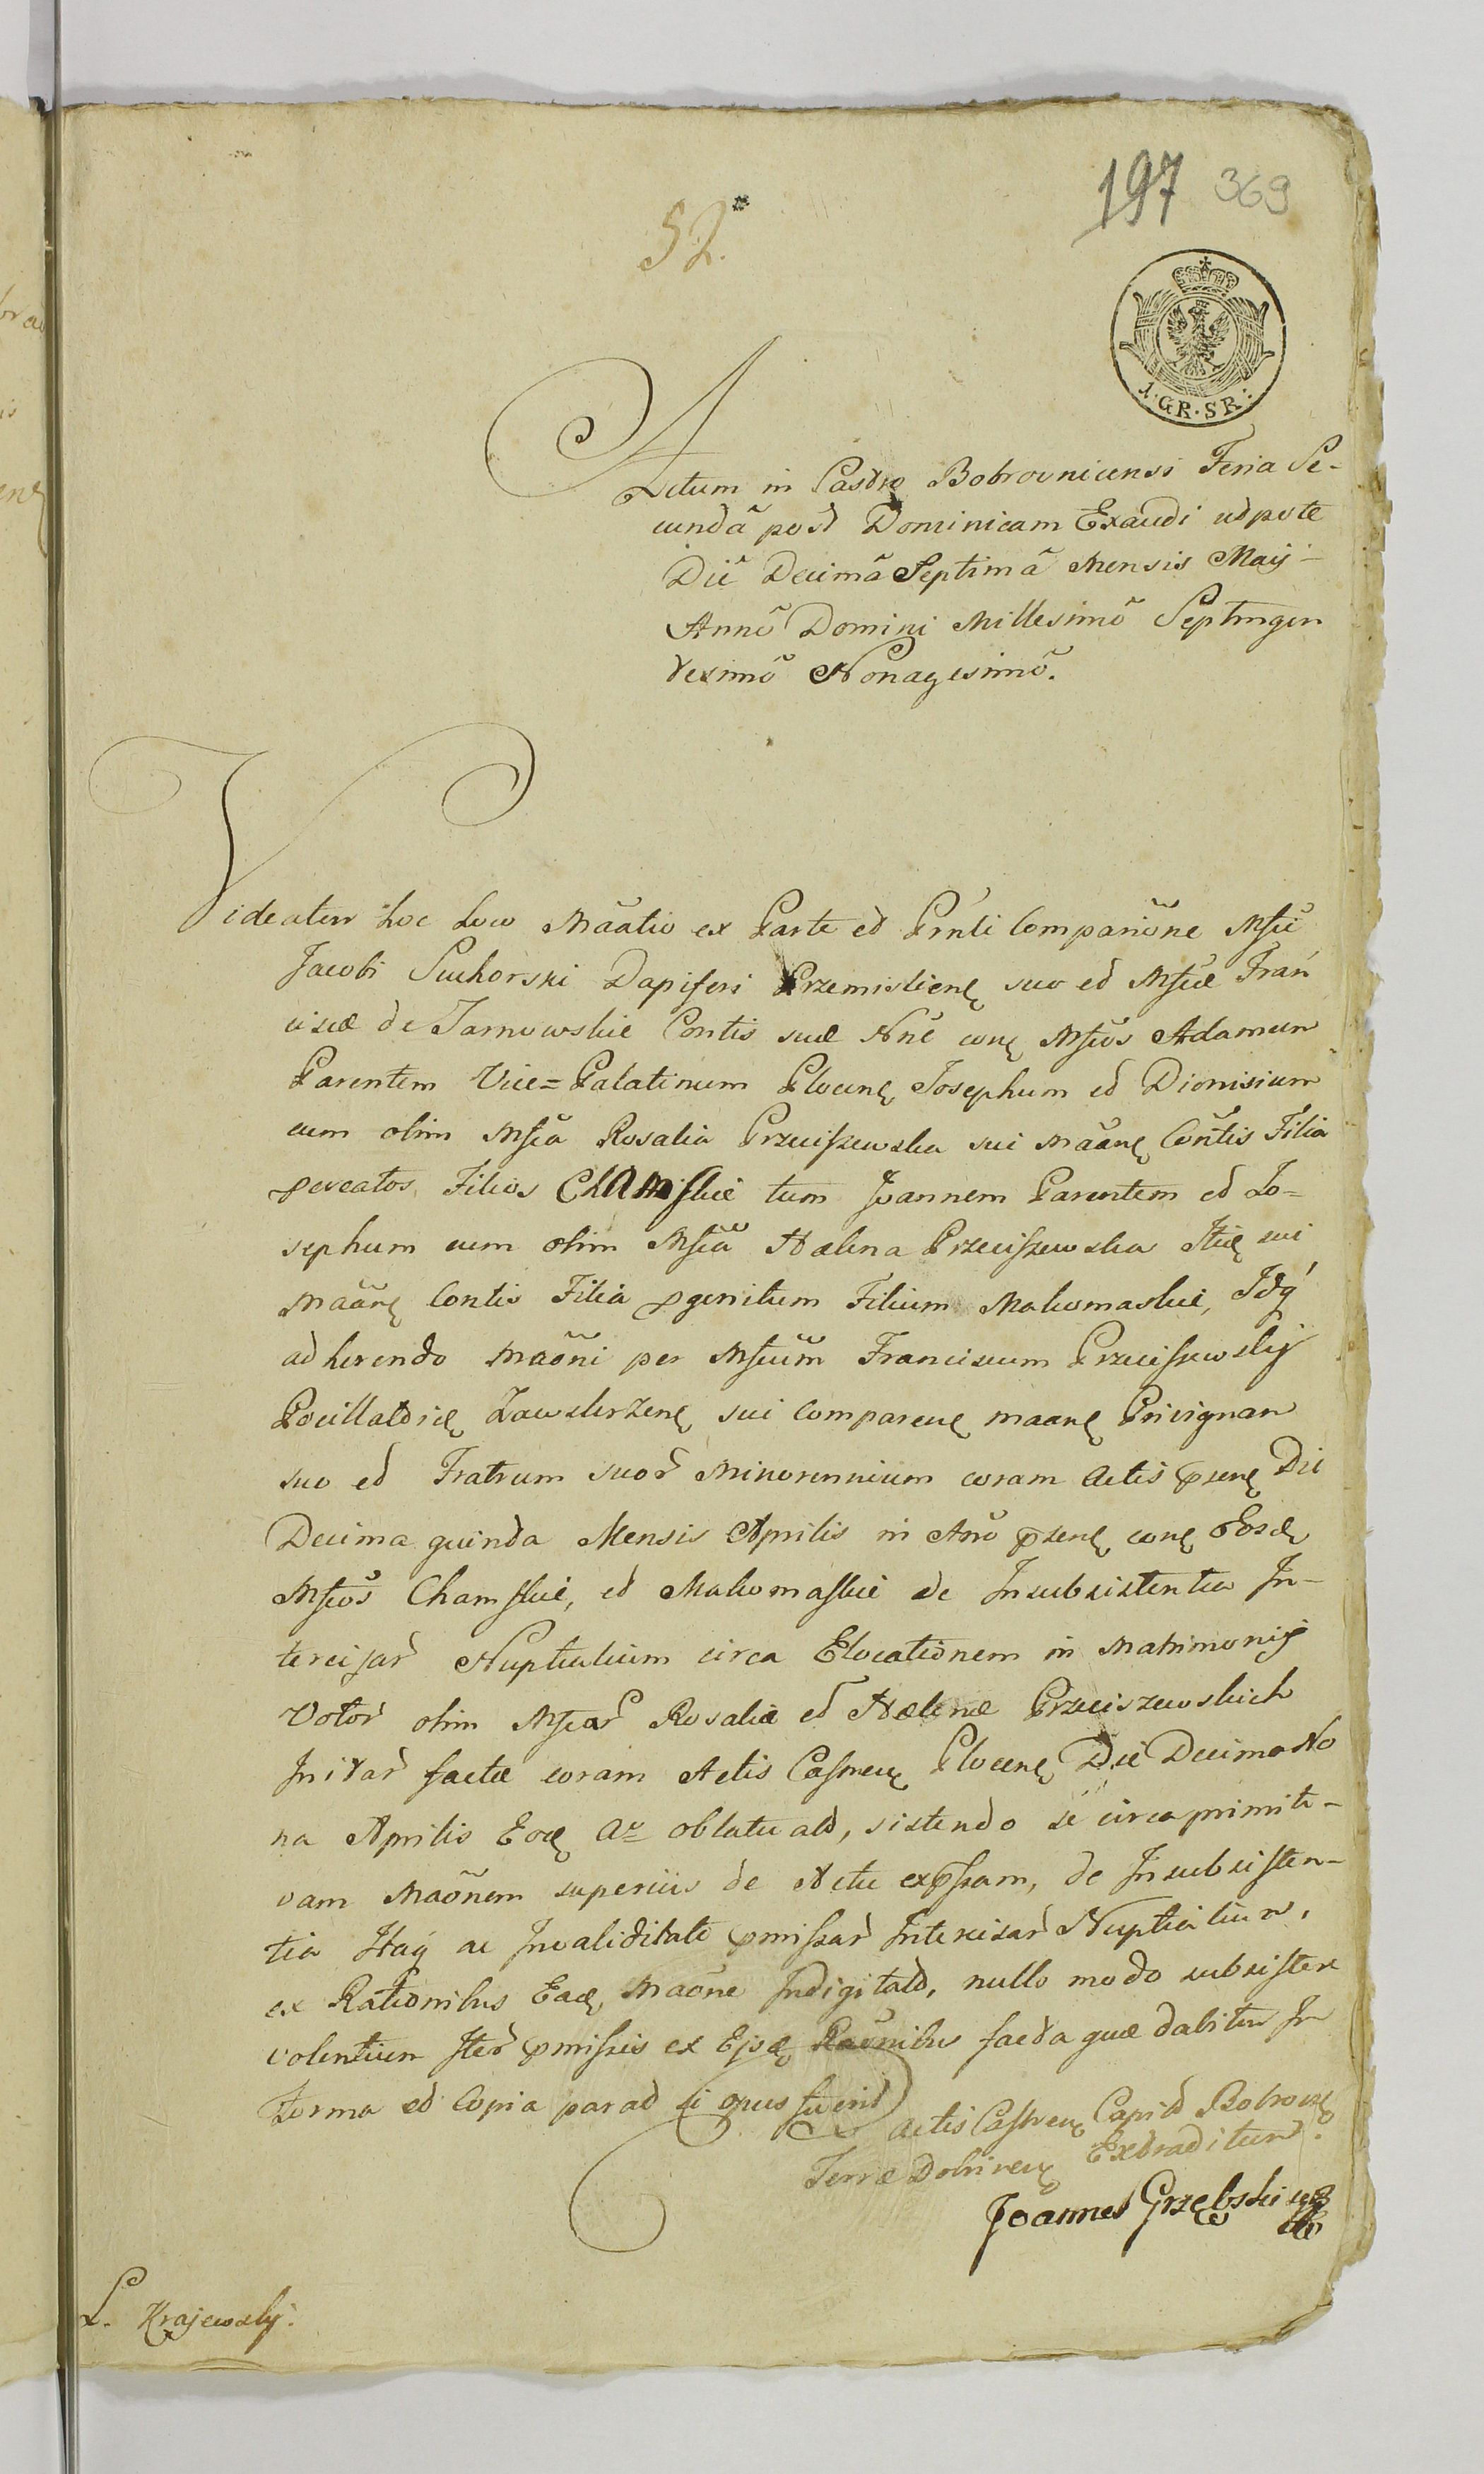 197 369
52.
1·GR·SR:
Actum in Castro Bobrovnicensi Feria Se-
cundã post Dominicam Exaudi utpote
Diẽ Decimã Septimã Mensis Maij
Annõ Domini Millesimõ Septingen
tesimõ Nonagesimõ.
Videatur hoc Loco Mããtio ex Parte et Prnti Compariõne Msci
Jacobi Suchorski Dapiferi Przemislienę suo et Mscæ Fran
ciscæ de Tarnowskie Contis suæ Nnẽ conę Mscos Adamum
Parentem Vice=Palatinum Plocenę Josephum et Dionisium
cum olim Mscã Rosalia Przeciszewska sui mãanę Coñtis Filia
pcreatos Filios Chamskie tum Joannem Parentem et Jo=
sephum cum olim Mscã Hælena Przeciszewska Itię sui
mããnę Contis Filia pgenitum Filium Makomaskie, Idq
adherendo Mãõni per Mscum Franciscum Przeciszewsky
Pocillatorię Zawskrzenę sui Comparenę maanę Privignan
suo et Fratrum suor Minorennium coram Actis psenę Die
Decima quinta Mensis Aprilis in Anõ psenę conę Eosdę
Mscos Chamskie, et Makomaskie de Insubsistentia In-
tercisar Nuptialium circa Elocationem in Matrimonij
Votor olim Mscar Rosaliæ et Hælenæ Przeciszewskich
Initar factæ coram Actis Castrenę Plocenę Die Decima No
na Aprilis Eodę ar oblatu ald, sistendo se circa primiti-
vam Mãõnem superiũs de Actu expssam, de Insubsisten-
tia Itaq ac Invaliditate pmissar Intercisar Nuptialium,
ex Rationibus Eadę Mãõne Indigitatd, nullo modo subsistere
volentium Iter pmissis ex Ejsdę Raõnibus facta quæ dabitur In
Forma et Copia parat si opus fuerit
Actis Castrenę Capit Bobrownę
Terræ Dobrinenę Extraditum.
Joannes Grzębski
L. Krajewsky.